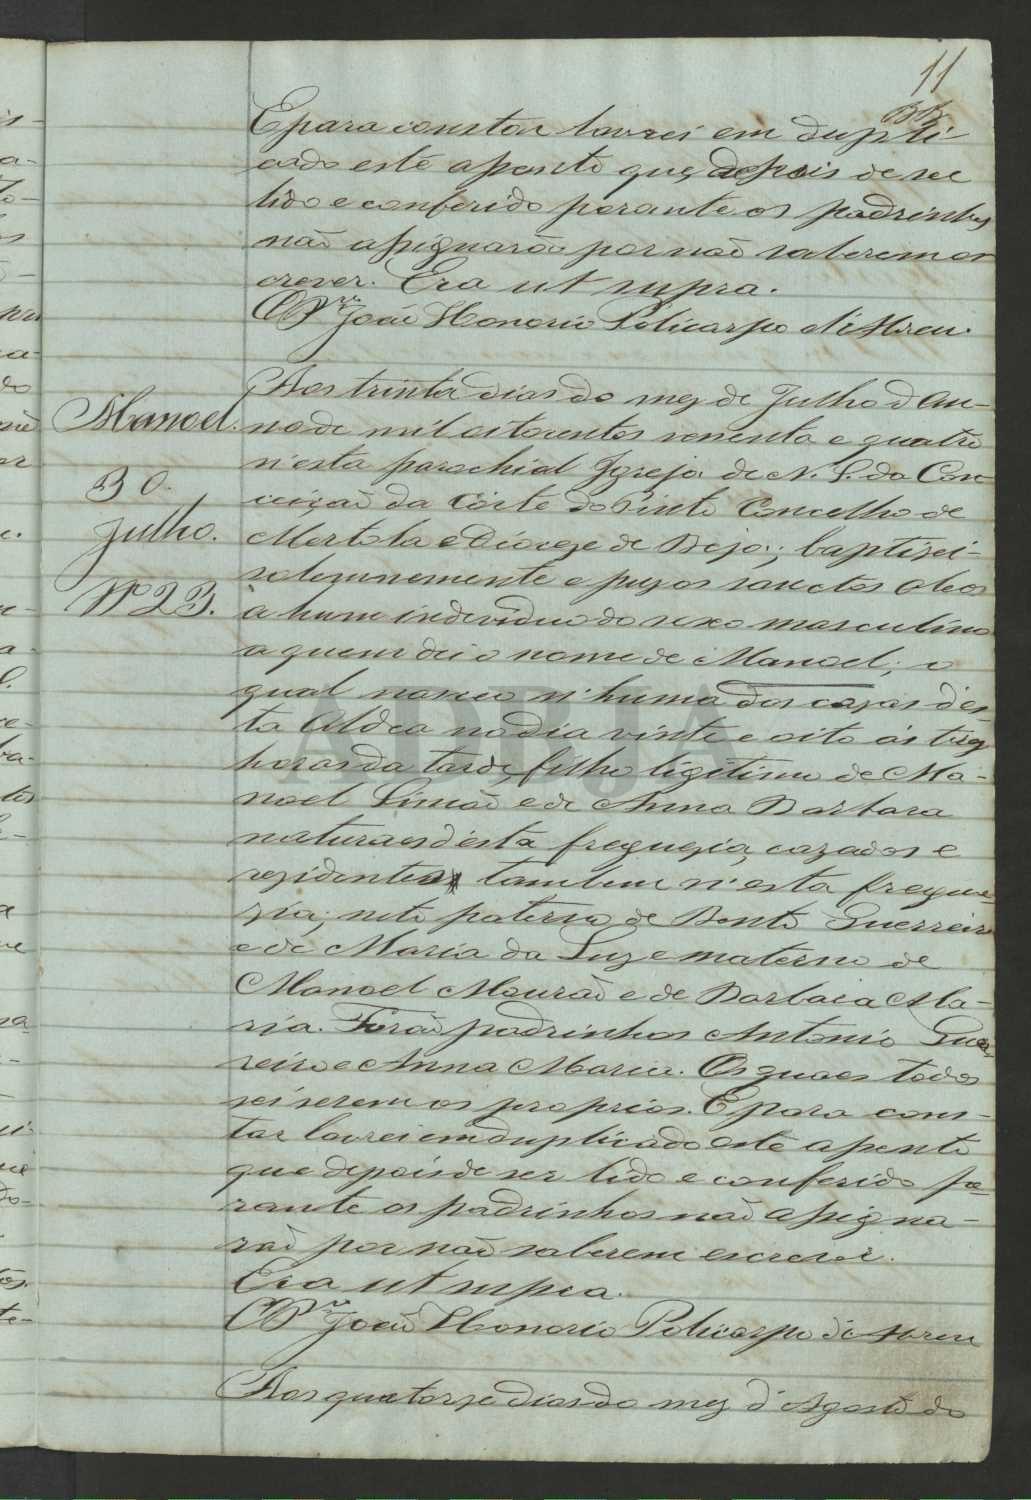 11
E para constar lavrei em dupli-
cado este assento que, depois de ser
lido e conferido perante os padrinhos
não assignarão por não saberem es
crever. Era ut supra.
O Pr. João Honorio Policarpo d'Abreu.
Aos trinta dias do mez de Julho d'an-
no de mil oitocentos secenta e quatro
n'esta parochial Igreja de N. S. da Con
ceição da Côrte do Pinto Concelho de
Mertola e Dioceze de Beja; baptizei-
solemnemente e puz os sanctos oleos
á hum individuo do sexo masculino
a quem dei o nome de Manoel; o
qual nasceo n'huma das cazas dés-
ta Aldea no dia vinte e oito ás trez
horas da tarde, filho ligitimo de Ma-
noel Simão e de Anna Barbara
naturaes désta freguezia, cazados e
rezidentes tambem n'esta fregue-
zia; neto paterno de Bento Guerreiro
e de Maria da Luz e materno de
Manoel Mourão e de Barbara Ma-
ria. Forão padrinhos Antonio Guer
reiro e Anna Maria. Os quaes todos
sei serem os proprios. E para cons-
tar lavrei em duplicado este assento
que depois de ser lido e conferido pe-
rante os padrinhos não assigna-
rão por não saberem escrever.
Era ut supra.
O Pr. João Honorio Policarpo d'Abreu
Aos quatorze dias do mez d'Agosto do
Manoel.
30.
Julho.
Nº 23.
ADBJA